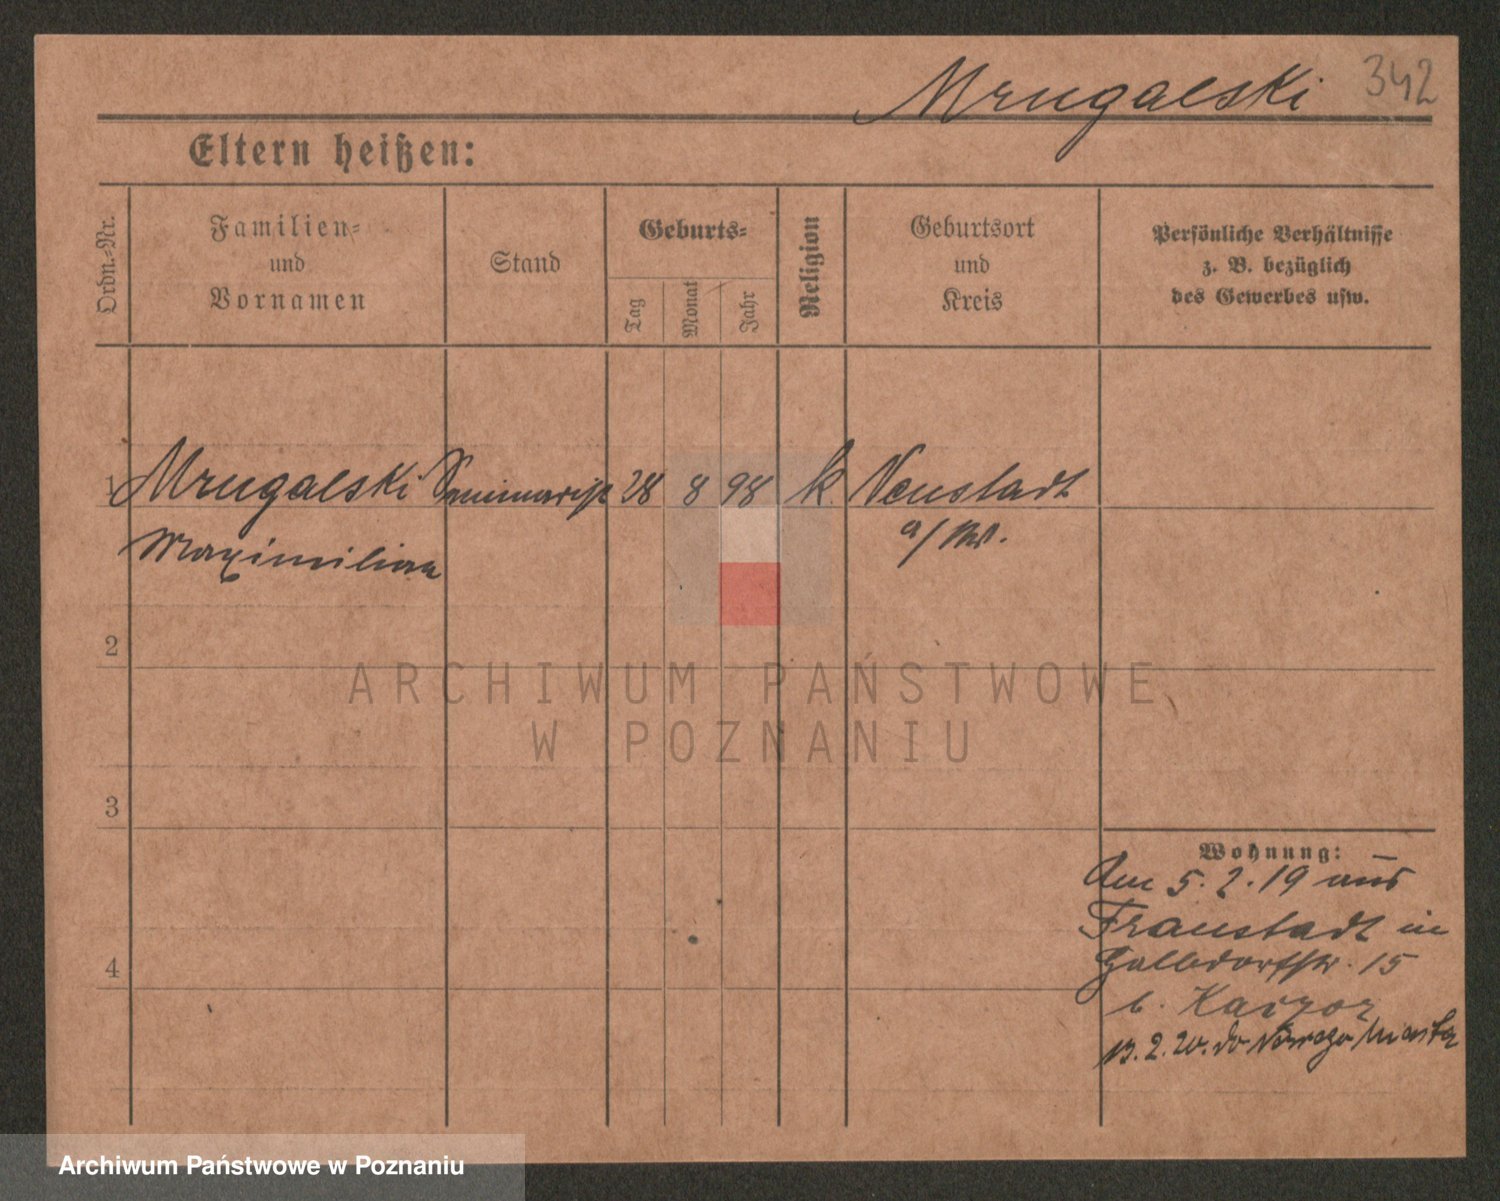 Mrugalski 342
Eltern heißen:
Ordn.-Nr.
Familien-
und
Vornamen
Stand
Geburts-
Tag
Monat
Jahr
Religion
Geburtsort
und
Kreis
Persönliche Verhältnisse
z. B. bezüglich
des Gewerbes usw.
1 Mrugalski Seminarist 28 8 98 k. Neustadt
Maximilian a/W.
2
ARCHIWUM PAŃSTWOWE
W POZNANIU
3
Wohnung:
Am 5.2.19 aus
Fraustadt in
4
15
b. Kaczor
13.2.20. do Nowego Miasta
Archiwum Państwowe w Poznaniu